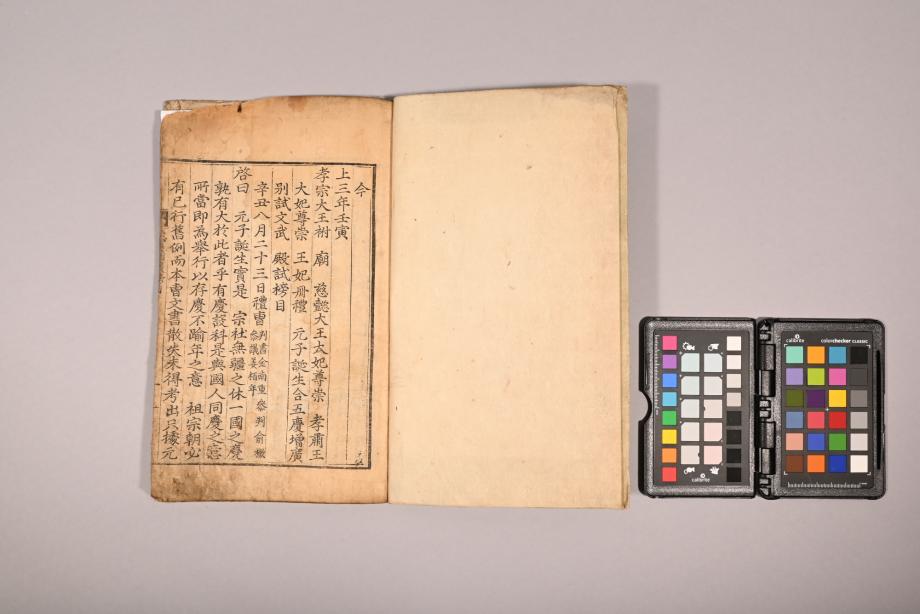 今
上三年壬寅
孝宗大王祔 廟 慈懿大王大妃尊崇 孝肅王
大妃尊崇 王妃冊禮 元子誕生合五慶增廣
別試文武 殿試榜目
辛丑八月二十三日禮曹判書金南重 參議姜栢年 參判俞㯙
啓曰 元子誕生實是 宗社無疆之休一國之慶
孰有大於此者乎有慶設科是與國人同慶之意
所當即為舉行以存慶不踰年之意 祖宗朝必
有已行舊例而本曹文書散失未得考出只據元
calibrite
calibrite
colorchecker CLASSIC